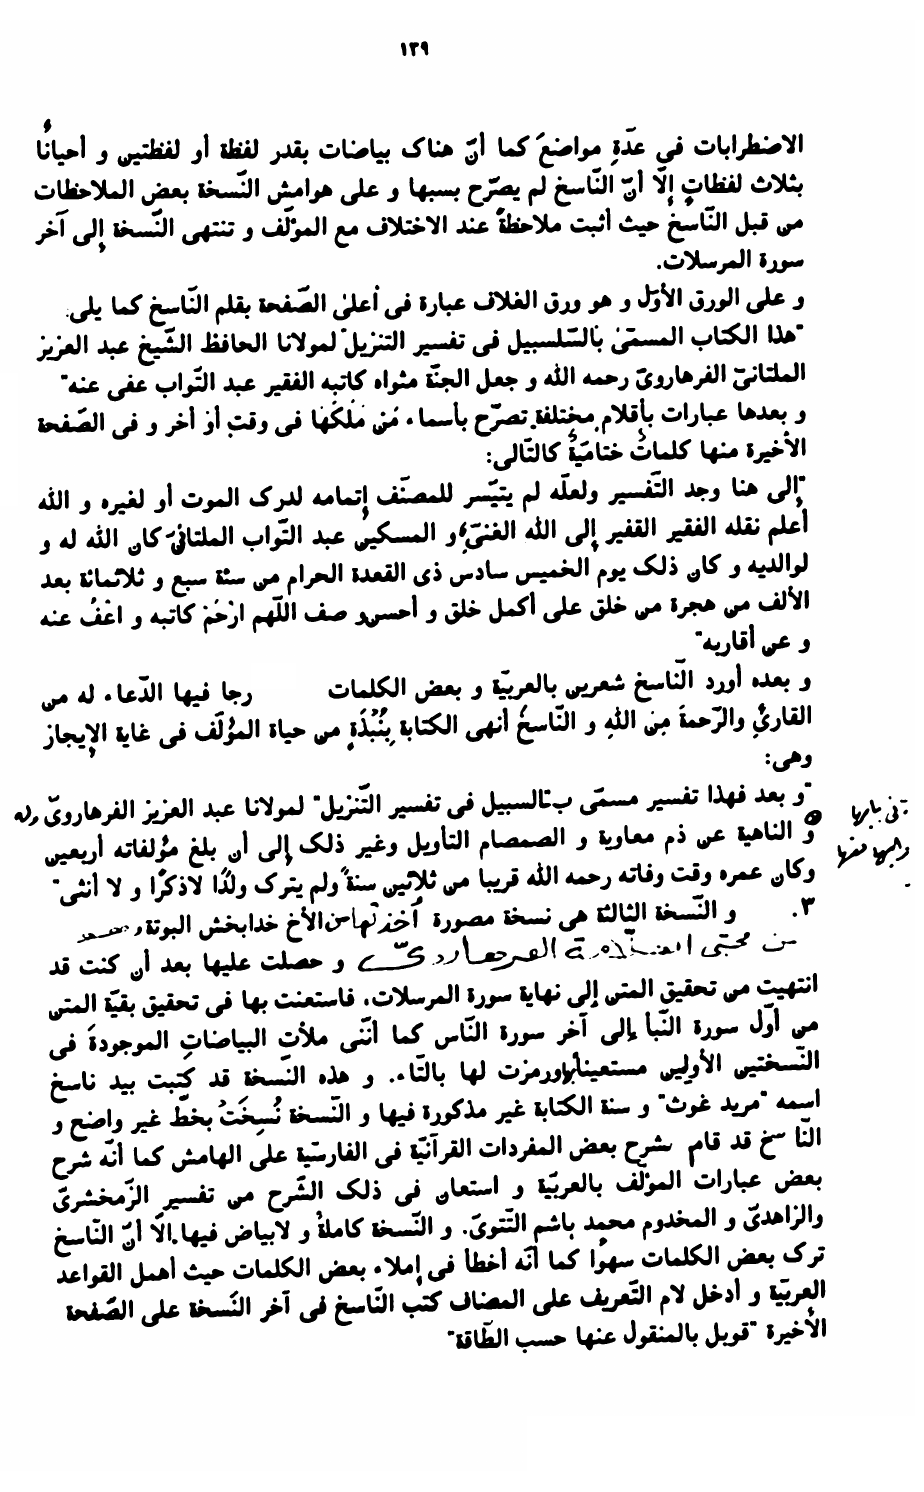 ١٣٩
الاضطرابات في عدّةِ مواضعَ كما أنّ هناک بياضات بقدر لفظة أو لفظتين و أحيانًا
بثلاث لفظاتٍ إلّا أنّ النّاسخ لم يصرّح بسبها و على هوامش النّسخة بعض الملاحظات
من قبل النّاسخ حيث أثبت ملاحظةً عند الاختلاف مع المؤلّف و تنتهى النّسخة إلى آخر
سورة المرسلات.
و على الورق الأوّل و هو ورق الغلاف عبارة فى أعلىٰ الصّفحة بقلم النّاسخ كما يلى:
"هذا الكتاب المسمّىٰ بالسّلسبيل فى تفسير التنزيل" لمولانا الحافظ الشّيخ عبد العزيز
الملتانىّ الفرهاروىّ رحمه الله و جعل الجنّة مثواه كاتبه الفقير عبد التّواب عفى عنه"
و بعدها عبارات بأقلام مختلفة تصرّح بأسماء مَنْ مَلَكَهَا فى وقتٍ أوْ أخر و فى الصّفحة
الأخيرة منها كلماتٌ ختاميّةٌ كالتّالى:
"إلى هنا وجد التّفسير ولعلّه لم يتيّسر للمصنّف إتمامه لدرک الموت أو لغيره و الله
أعلم نقله الفقير القفير إلى الله الغنىّ و المسكين عبد التّواب الملتانىّ كان الله له و
لوالديه و كان ذلک يوم الخميس سادس ذى القعدة الحرام من سنة سبع و ثلاثمائة بعد
الألف من هجرة من خلق على أكمل خلق و أحسن و صف اللّهم ارْحَمْ كاتبه و اعْفُ عنه
و عن أقاربه"
و بعده أورد النّاسخ شعرين بالعربيّة و بعض الكلمات رجا فيها الدّعاء له من
القارئِ والرّحمةَ مِنَ اللهِ و النّاسخُ أنهى الكتابة بِنُبْذَةٍ من حياة المؤلّف فى غاية الإيجاز
وهى:
"و بعد فهذا تفسير مسمّى ب"السبيل فى تفسير التّنزيل" لمولانا عبد العزيز الفرهاروىّ وله
و الناهية عن ذم معاوية و الصمصام التأويل وغير ذلک إلى أن بلغ مؤلفاته أربعين
وكان عمره وقت وفاته رحمه الله قريبا من ثلاثين سنةً ولم يترک ولدًا لاذكرًا و لا أنثى"
٣. و النّسخة الثالثة هى نسخة مصورة أخذتها من الأخ خدابخش البوتة
من محبّى العلّامة الفرهاروىّ و حصلت عليها بعد أن كنت قد
انتهيت من تحقيق المتن إلى نهاية سورة المرسلات، فاستعنت بها فى تحقيق بقيّة المتن
من أوّل سورة النّبأ إلى آخر سورة النّاس كما أنّنى ملأت البياضاتِ الموجودةَ فى
النّسختين الأوليين مستعينابها ورمزت لها بالتّاء. و هذه النّسخة قد كتبت بيد ناسخ
اسمه "مريد غوث" و سنة الكتابة غير مذكورة فيها و النّسخة نُسِخَتْ بخطّ غير واضح و
النّا سخ قد قام بشرح بعض المفردات القرآنيّة فى الفارسّية على الهامش كما أنّه شرح
بعض عبارات المؤلّف بالعربيّة و استعان فى ذلک الشّرح من تفسير الزّمخشرىّ
والزاهدىّ و المخدوم محمد باشم التّتوىّ. و النّسخة كاملةٌ و لابياض فيها.الّا أنّ النّاسخ
ترک بعض الكلمات سهوًا كما أنّه أخطأ فى إملاء بعض الكلمات حيث أهمل القواعد
العربيّة و أدخل لام التّعريف على المضاف كتب النّاسخ فى آخر النّسخة على الصّفحة
الأخيرة "قوبل بالمنقول عنها حسب الطّاقة"